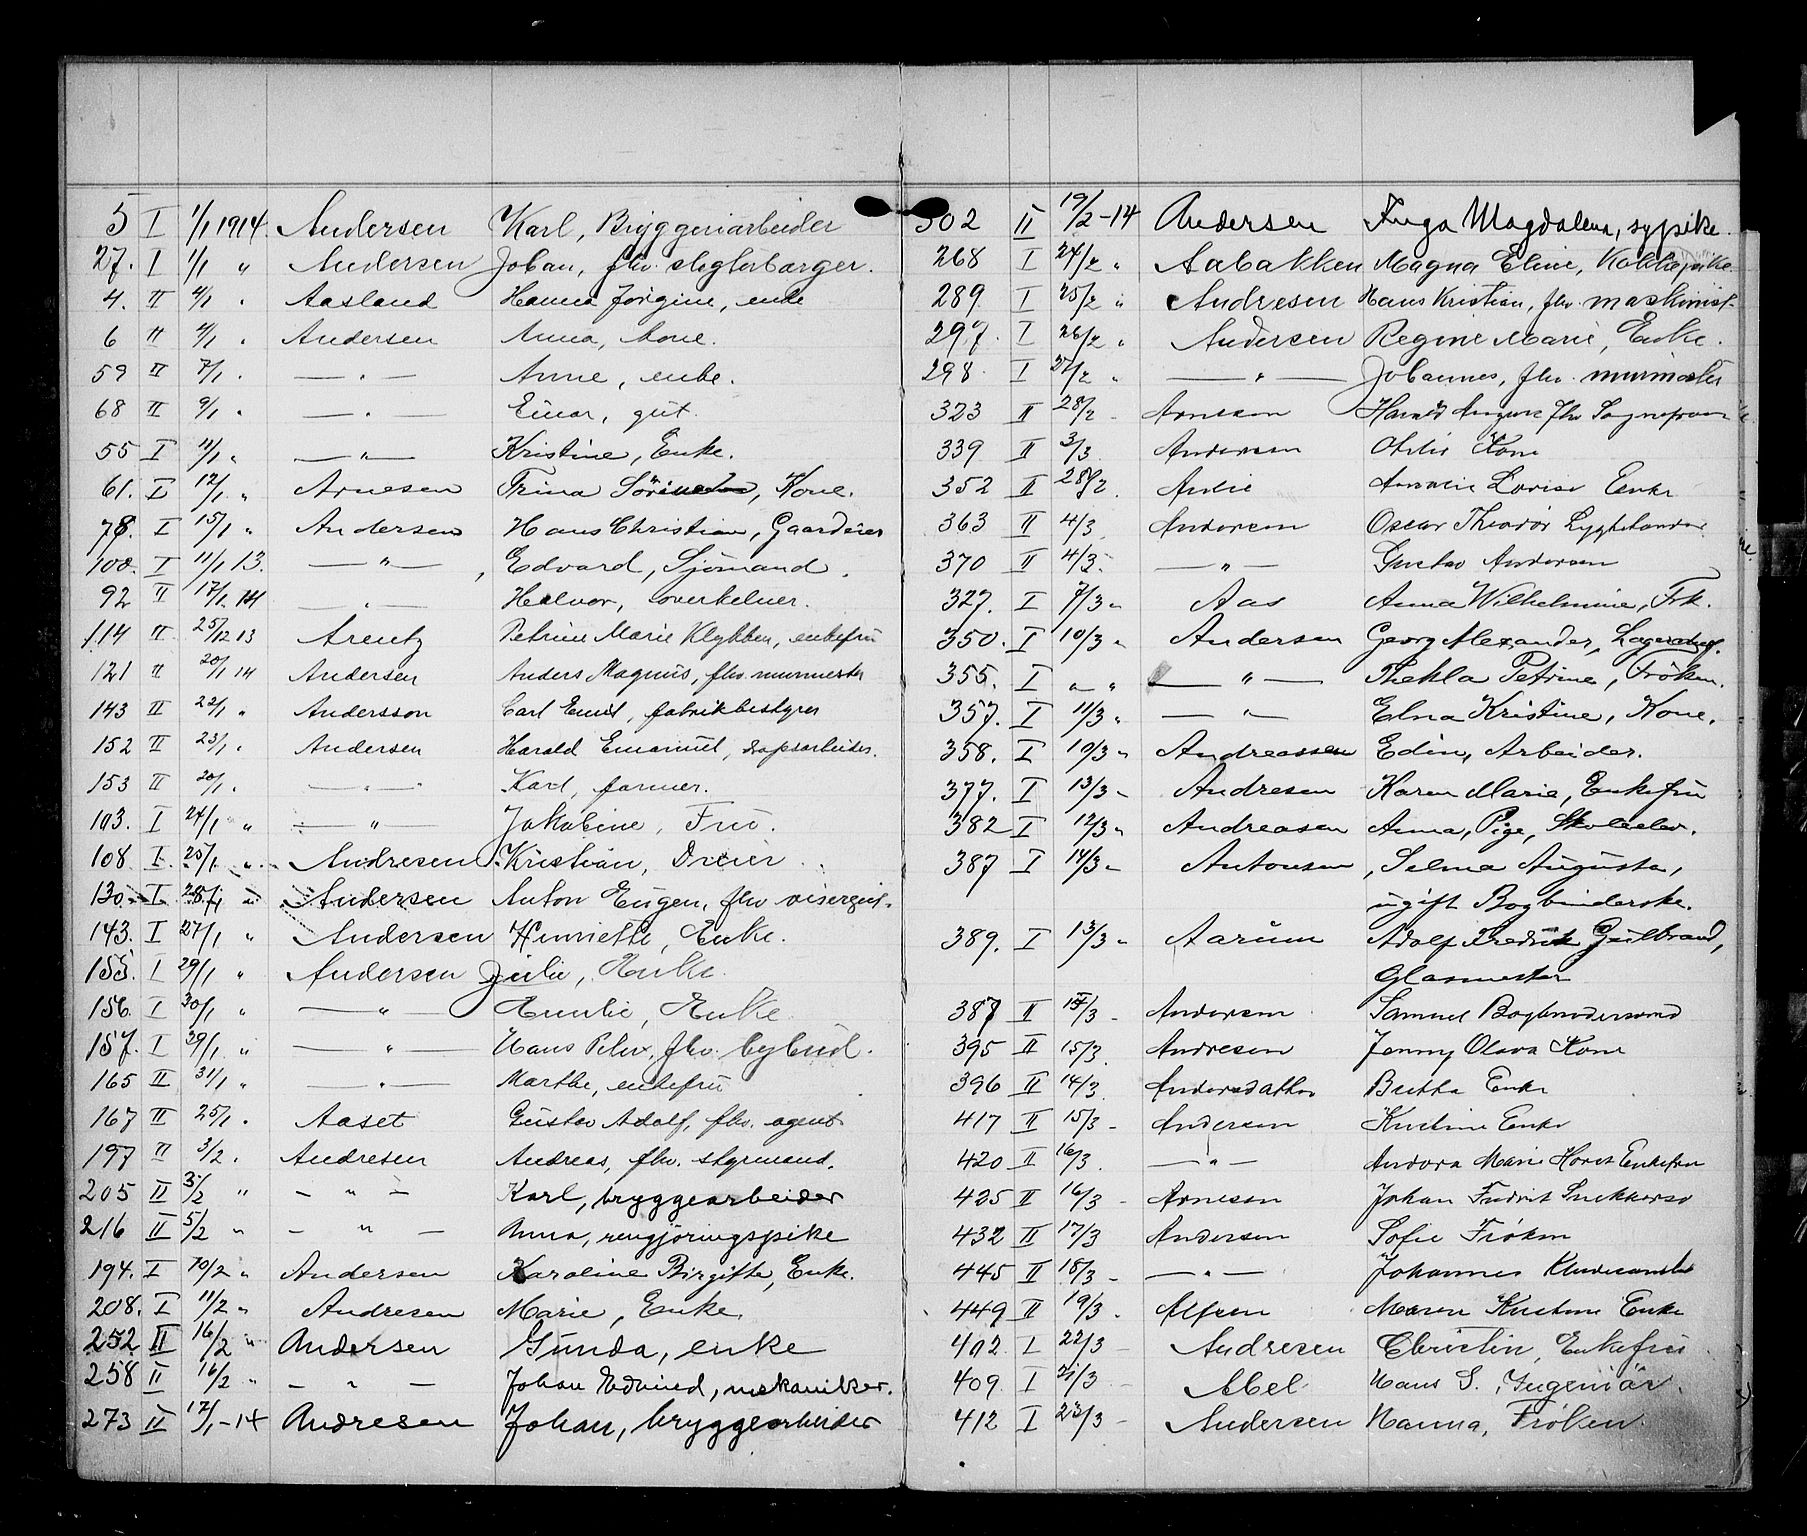 5 I 1/1 1914. Andersen Karl, Bryggeriarbeider
27. I 1/1 " Andersen Johan, fhv.
4. II 4/1 " Aasland Hanna Jørgine, enke
6 II 4/1 " Andersen Anna, kone.
59 II 7/1 " — " — Anne, enke.
68 II 9/1 " — " — Einar, gut.
55 I 11/1 " — " — Kristine, Enke.
61. I 12/1 " Arnesen Trina Kone.
78. I 15/1 " Andersen Hans Christian, Gaardeier
100. I 11/1 13. — " — Edvard, Sjömand.
92 II 17/1 14 — " — Halvor, overkelner.
114 II 25/12 13 Arentz Petrine Marie enkefru
121 II 20/1 14 Andersen Anders Magnus, fhv. murmester
143 II 22/1 " Andersson Carl Emil, fabrikbestyrer
152 II 23/1 " Andersen Harald Emanuel,
153 II 20/1 " — " — Karl, farmer.
103. I 24/1 " — " — Jakobine, Fru.
108 I. 25/1 " Andresen Kristian, Dreier
130. I 28/1 " Andersen Anton Eugen, fhv visergut.
143. I 27/1 " Andersen Henriette, Enke.
155. I 29/1 " Andersen Julie, Enke.
156. I 30/1 " — " — Emilie, Enke.
157. I 29/1 " — " — Hans Peter, fhv. bybud.
165 II 31/1 " — " — Marthe, enkefru
167 II 25/1 " Aaset Gustav Adolf, fhv. agent
197 II 3/2 " Andresen Andreas, fhv. styrmand.
205 II 3/2 " — " — Karl, bryggearbeider
216 II 5/2 " — " — Anna, rengjöringspike
194. I 10/2 " Andersen Karoline Birgitte, Enke.
208. I 11/2 " Andresen Marie, Enke.
252 II 16/2 " Andersen Gunda, enke
258 II 16/2 " — " — Johan Edvind, mekaniker.
273 II 17/1 -14 Andresen Johan, bryggearbeider
302 II 19/2 -14 Andersen Inga Magdalena, sypike.
268 I 24/2 " Aabakken Magna Eline, Kokkepike
289. I 25/2 " Andresen Hans Kristian, fhv. maskinist.
297. I 26/2 " Andersen Regine Marie, Enke.
298. I 27/2 " — " — Johannes, fhv. murmester
323 II 28/2 - Arnesen Harald August fhv
339 II 3/3 Andersen Othilie Kone
352 II 28/2. Amalie Lovise Enke
363 II 4/3 Andersen Oscar Theodor
370 II 4/3. — " — Gustav Andersen
327. I 7/3 " Aas Anna Wilhelmine, Frk.
350. I 10/3 " Andersen Georg Alexander,
355. I " " — " — Thekla Petrine, Frøken.
357. I 11/3 " — " — Elna Kristine, Kone.
358. I 10/3 " Andreassen Edin, Arbeider.
377. I 13/3 - Andresen Karen Marie, Enkefru
382 I 12/3 " Andreasen Anna, Pige, Skoleelev.
387 I 14/3 " Antonsen, Selma Augusta,
ugift Bogbinderske.
389. I 13/3 " Aarum Adolf Fredrik Gulbrand,
Glasmester
387 II 15/3 - Andersen Samuel
395 II 15/3 Andresen Jenny Olava Kone
396 II 14/3 Andersdatter Berthe Enke
417 II 15/3 - Andersen Kristine Enke
420 II 16/3. — " — Andora Marie Enkefru
425 II 16/3 - Arnesen Johan Fredrik
432 II 17/3 Andersen Sofie Frøken
445 II 18/3 - — " — Johannes
449 II 19/3 - Alfsen Maren Kristine Enke
402 I 22/3 - Andresen Christin, Enkefru
409. I 21/3 - Abel Hans S., Ingeniør.
412 I 23/3 - Andersen Hanna, Frøken.